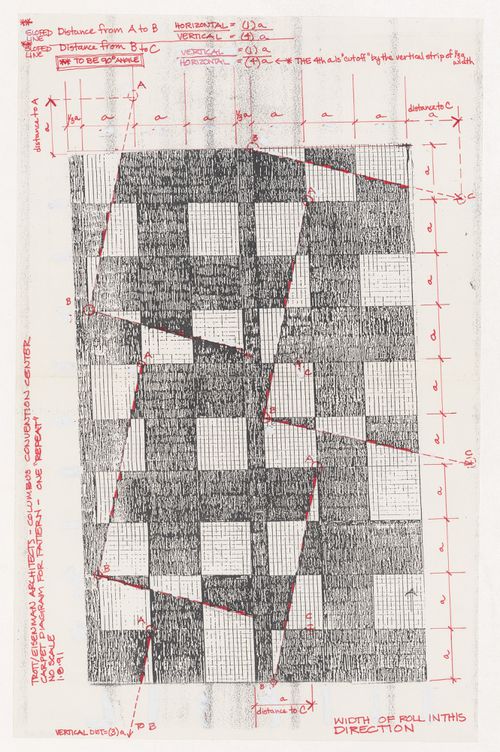 ** SLOPED LINE Distance from A to B HORIZONTAL = (1) a
VERTICAL = (4) a
** SLOPED LINE Distance from B to C VERTICAL = (1) a
HORIZONTAL = (4) a ← * THE 4th a is "cutoff" by the vertical strip of 1/3 a width
** TO BE 90° ANGLE
distance to A
a
A
1/3 a
a
a
a
1/3 a
a
a
distance to C
B
A
C
a
a
a
a
B
A
C
B
a
a
a
A
B
a
a
A
C
a
B
TO B
VERTICAL DIST = (3) a
a
distance to C
WIDTH OF ROLL IN THIS
DIRECTION
TROTT/EISENMAN ARCHITECTS - COLUMBUS CONVENTION CENTER
CARPET DIAGRAM FOR PATTERN - ONE "REPEAT"
NO SCALE
1·8·91